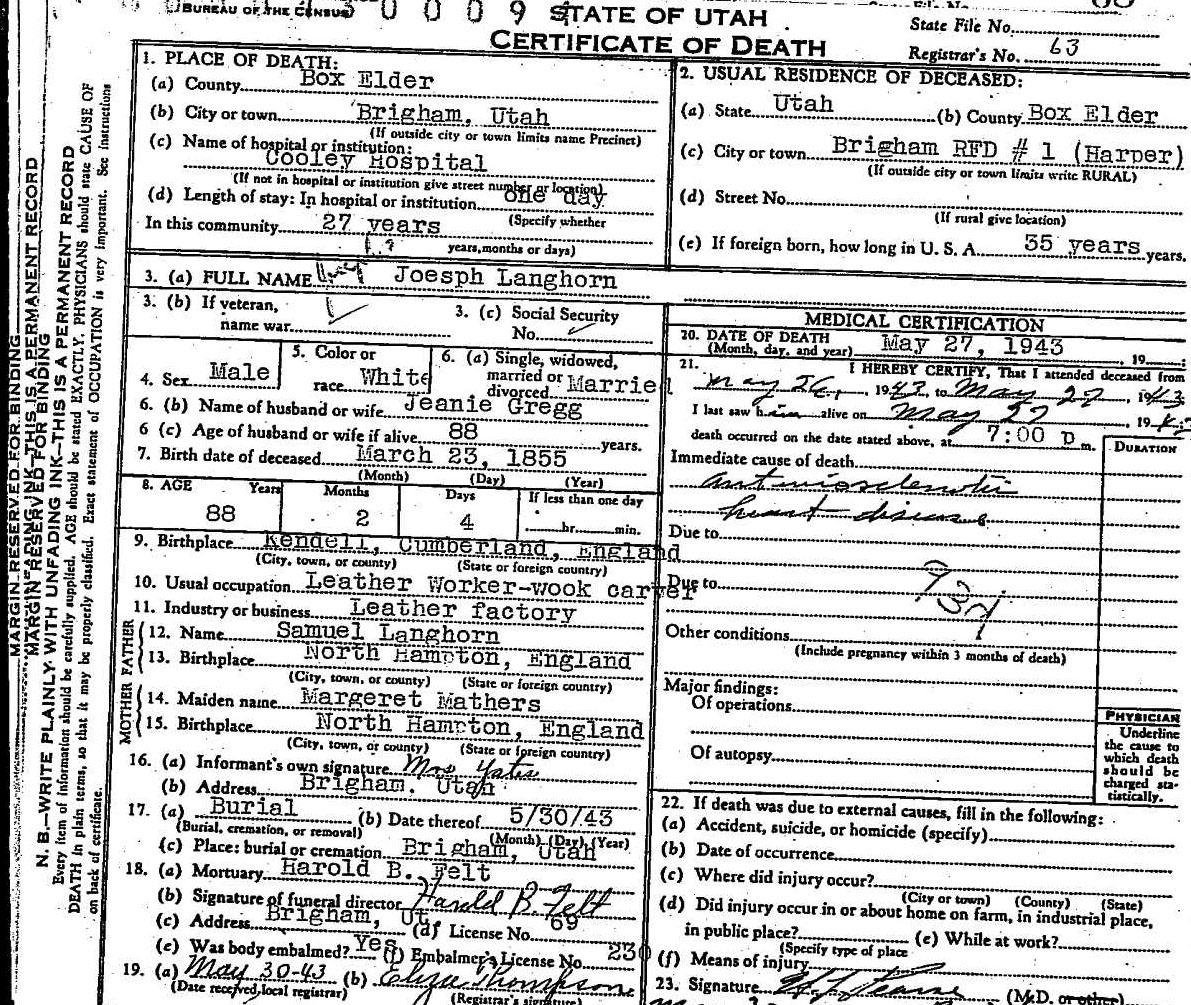 BUREAU OF THE CENSUS 0 0 0 9 STATE OF UTAH
State File No.
CERTIFICATE OF DEATH
Registrar's No. 63
MARGIN RESERVED FOR BINDING
MARGIN RESERVED FOR BINDING
N. B.—WRITE PLAINLY WITH UNFADING INK—THIS IS A PERMANENT RECORD
Every item of information should be carefully supplied. AGE should be stated EXACTLY. PHYSICIANS should state CAUSE OF
DEATH in plain terms, so that it may be properly classified. Exact statement of OCCUPATION is very important. See instructions
on back of certificate.
1. PLACE OF DEATH:
(a) County Box Elder
(b) City or town Brigham, Utah
(If outside city or town limits name Precinct)
(c) Name of hospital or institution:
Cooley Hospital
(If not in hospital or institution give street number or location)
(d) Length of stay: In hospital or institution one day
(Specify whether
In this community 27 years
years, months or days)
2. USUAL RESIDENCE OF DECEASED:
(a) State Utah (b) County Box Elder
(c) City or town Brigham RFD # 1 (Harper)
(If outside city or town limits write RURAL)
(d) Street No.
(If rural give location)
(e) If foreign born, how long in U. S. A. 35 years years.
3. (a) FULL NAME Joesph Langhorn
3. (b) If veteran,
name war
3. (c) Social Security
No.
4. Sex Male
5. Color or
race White
6. (a) Single, widowed,
married or
divorced Married
6. (b) Name of husband or wife Jeanie Gregg
6 (c) Age of husband or wife if alive 88 years.
7. Birth date of deceased March 23, 1855
(Month) (Day) (Year)
8. AGE Years Months Days If less than one day
88 2 4 hr. min.
9. Birthplace Kendell, Cumberland, England
(City, town, or county) (State or foreign country)
10. Usual occupation Leather Worker-wook carver
11. Industry or business Leather factory
FATHER
12. Name Samuel Langhorn
13. Birthplace North Hampton, England
(City, town, or county) (State or foreign country)
MOTHER
14. Maiden name Margeret Mathers
15. Birthplace North Hampton, England
(City, town, or county) (State or foreign country)
16. (a) Informant's own signature Mrs Yates
(b) Address Brigham. Utah
17. (a) Burial (b) Date thereof 5/30/43
(Burial, cremation, or removal) (Month) (Day) (Year)
(c) Place: burial or cremation Brigham, Utah
18. (a) Mortuary Harold B. Felt
(b) Signature of funeral director Harold B. Felt
(c) Address Brigham, Ut (d) License No. 69
(e) Was body embalmed? Yes (f) Embalmer's License No. 230
19. (a) May 30-43 (b) Eliza Thompson
(Date received local registrar) (Registrar's signature)
MEDICAL CERTIFICATION
20. DATE OF DEATH
(Month, day, and year) May 27, 1943, 19
21. I HEREBY CERTIFY, That I attended deceased from
May 26, 1943, to May 27, 1943
I last saw him alive on May 27, 1943
death occurred on the date stated above, at 7:00 p m.
DURATION
Immediate cause of death
arteriosclerotic
heart disease
Due to
Due to
Other conditions
(Include pregnancy within 3 months of death)
Major findings:
Of operations
Of autopsy
PHYSICIAN
Underline
the cause to
which death
should be
charged sta-
tistically.
22. If death was due to external causes, fill in the following:
(a) Accident, suicide, or homicide (specify)
(b) Date of occurrence
(c) Where did injury occur?
(City or town) (County) (State)
(d) Did injury occur in or about home on farm, in industrial place,
in public place? (e) While at work?
(Specify type of place
(f) Means of injury
23. Signature (M.D. or other)